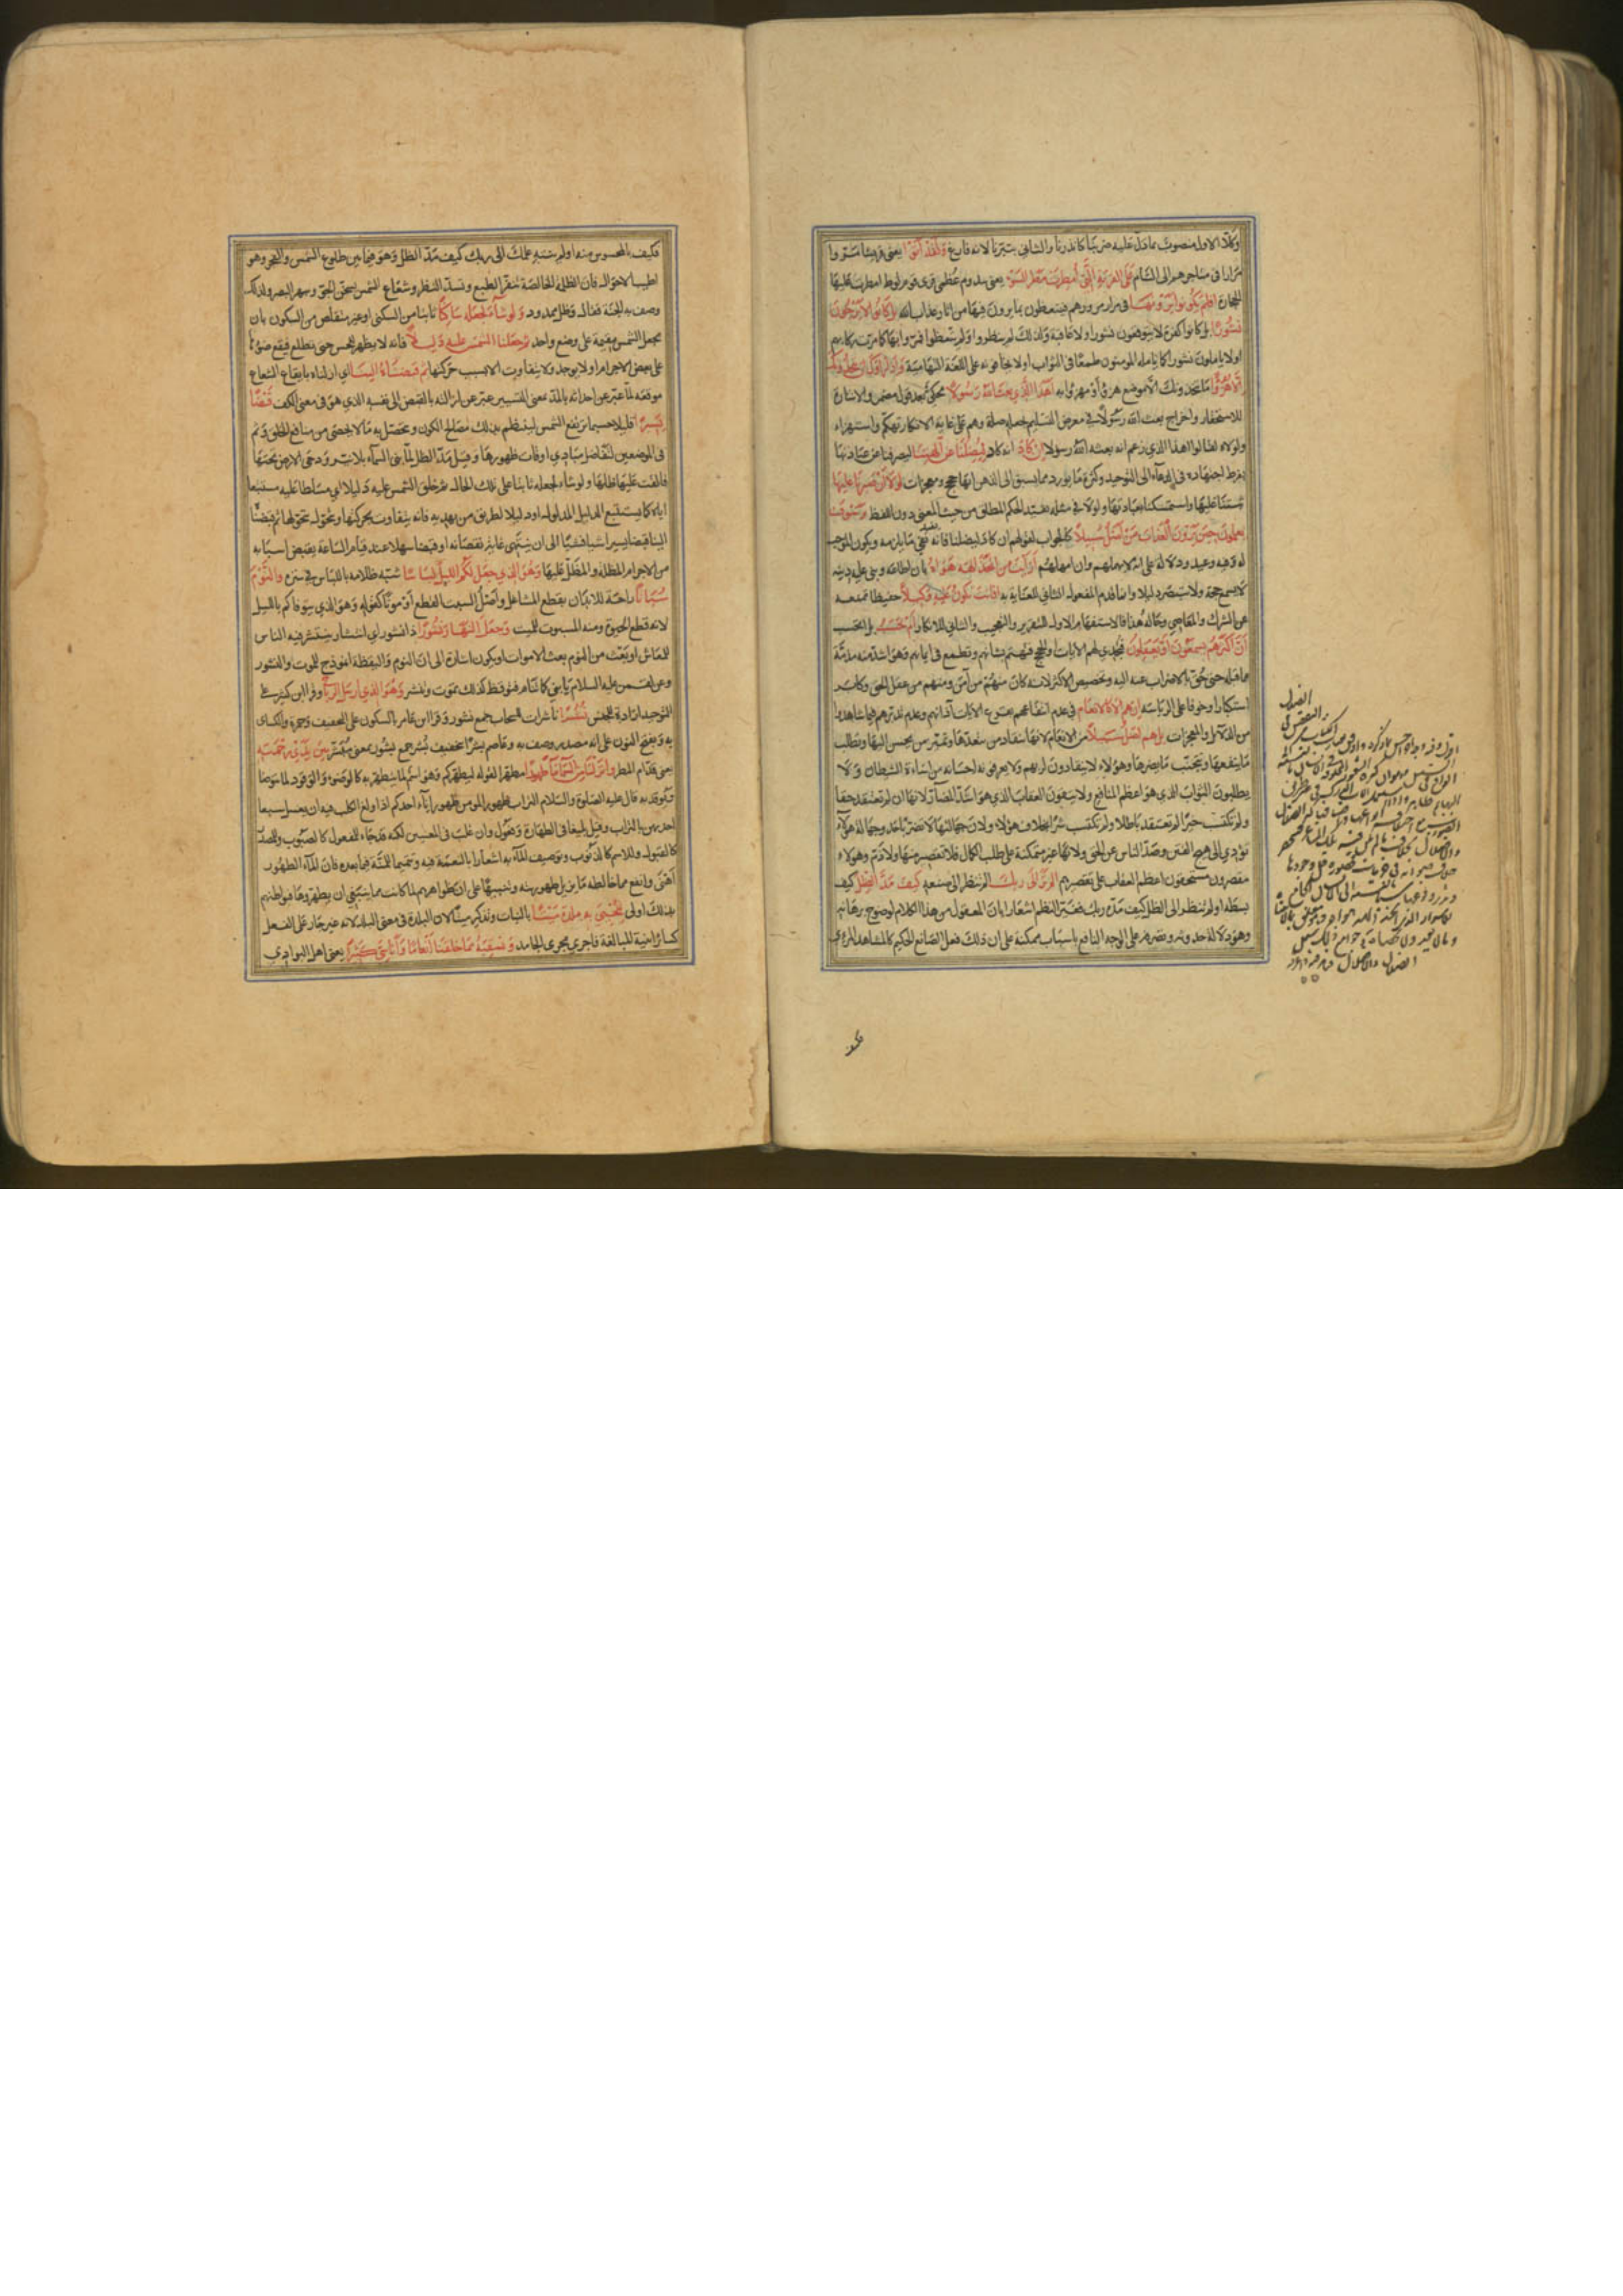 وكلّا الاول منصوب بما دلّ عليه ضربنا كانذرنا والثاني بتبّرنا لانه فارغ ولقد أتوا يعني قريشا مرّوا
مرارا في متاجرهم الى الشام على القرية التي أمطرت مطر السوء يعني سدوم عظمى قرى قوم لوط امطرت عليها
الحجارة افلم يكونوا يرونها في مرار مرورهم فيتعظون بما يرون فيها من اثار عذاب الله بل كانوا لا يرجون
نشورا بل كانوا كفرة لا يتوقعون نشورا ولا عاقبة ولذلك لم ينظروا ولم يتعظوا فمرّوا بها كما مرّت ركابهم
اولا ياملون نشورا كما يامله المومنون طمعا في الثواب اولا يخافونه على اللغة التهامية واذا رأوك ان يتخذونك
الّا هزؤا ما يتخذونك الا موضع هزؤ او مهزوّا به أهذا الذي بعث الله رسولا محكيّ بعد قول مضمر والاشارة
للاستحقار واخراج بعث الله رسولا في معرض التسليم بجعله صلة وهم على غاية الانكار تهكّم واستهزاء
ولولاه لقالوا اهذا الذي زعم انه بعثه الله رسولا إن كاد انه كاد ليضلنا عن آلهتنا ليصرفنا عن عبادتها
بفرط اجتهاده في الدعاء الى التوحيد وكثرة ما يورد مما يسبق الى الذهن انها حجج ومعجزات لولا أن صبرنا عليها
ثبتنا عليها واستمسكنا بعبادتها ولولا في مثله تقيّد الحكم المطلق من حيث المعنى دون اللفظ وسوف
يعلمون حين يرون العذاب من أضل سبيلا كالجواب لقولهم ان كاد ليضلنا فانه يفيد نفي ما يلزمه ويكون الموجب
له وفيه وعيد ودلالة على انه لا يهملهم وان امهلهم أرأيت من اتخذ إلهه هواه بان اطاعه وبنى عليه دينه
لا يسمع حجة ولا يتبصّر دليلا وانما قدم المفعول الثاني للعناية به أفأنت تكون عليه وكيلا حفيظا تمنعه
عن الشرك والمعاصي وحاله هذا فالاستفهام الاول للتقرير والتعجيب والثاني للانكار أم تحسب بل اتحسب
أنّ أكثرهم يسمعون أو يعقلون فتجدي لهم الايات والحجج فتهتم بشانهم وتطمع في ايمانهم وهو اشد مذمّة
مما قبله حتى حُقّ بالاضراب عنه اليه وتخصيص الاكثر لانه كان منهم من آمن ومنهم من عقل الحق وكابر
استكبارا وخوفا على الرياسة إن هم إلا كالأنعام في عدم انتفاعهم بقرع الايات آذانهم وعدم تدبّرهم فيما شاهدوا
من الدلائل والمعجزات بل هم أضل سبيلا من الانعام لانها تنقاد من يتعهّدها وتميّز من يحسن اليها وتطلب
ما ينفعها وتجتنب ما يضرها وهؤلاء لا ينقادون لربهم ولا يعرفونه احسانه من اساءة الشيطان ولا
يطلبون الثواب الذي هو اعظم المنافع ولا يتقون العقاب الذي هو اشدّ المضارّ لانها ان لم تعتقد حقا
ولم تكتسب خيرا لم تعتقد باطلا ولم تكتسب شرّا بخلاف هؤلاء ولان جهالتها لا تضرّ باحد وجهالة هؤلاء
تؤدي الى هيج الفتن وصدّ الناس عن الحق ولانها غير متمكنة على طلب الكمال فلا تقصير منها ولا ذمّ وهؤلاء
مقصرون مستحقون اعظم العقاب على تقصيرهم ألم تر إلى ربك الم تنظر الى صنعه كيف مدّ الظل كيف
بسطه او لم تنظر الى الظل كيف مدّه ربك فغيّر النظم اشعارا بان المعقول من هذا الكلام لوضوح برهانه
وهو دلالة حدوثه وتصرفه على الوجه النافع باسباب ممكنة على ان ذلك فعل الصانع الحكيم كالمشاهد المرئي
فكيف بالمحسوس منه او لم ينته علمك الى ربك كيف مدّ الظل وهو فيما بين طلوع الشمس والفجر وهو
اطيب الاحوال فان الظلمة الخالصة تنفر الطبع وتسدّ النظر وشعاع الشمس يسخن الجو ويبهر البصر ولذلك
وصف به الجنة فقال وظل ممدود ولو شاء لجعله ساكنا ثابتا من السكنى او غير متقلص من السكون بان
يجعل الشمس مقيمة على وضع واحد ثم جعلنا الشمس عليه دليلا فانه لا يظهر للحس حتى تطلع فيقع ضوءها
على بعض الاجرام او لا يوجد ولا يتفاوت الا بسبب حركتها ثم قبضناه إلينا اي ازلناه بايقاع الشعاع
موقعه لمّا عبّر عن احداثه بالمدّ بمعنى التسيير عبّر عن ازالته بالقبض الى نفسه الذي هو في معنى الكف قبضا
يسيرا قليلا قليلا حسبما ترتفع الشمس لينتظم بذلك مصالح الكون ويحصّل به ما لا يحصى من منافع الخلق وثم
في الموضعين لتفاضل مبادي اوقات ظهورها وقيل مدّ الظل لمّا بنى السماء بلا نيّر ودحى الارض تحتها
فالقت عليها ظلها ولو شاء لجعله ثابتا على تلك الحالة ثم خلق الشمس عليه دليلا اي مسلطا عليه مستتبعا
اياه كما يستتبع الدليل المدلول او دليلا لطريق من يهديه فانه يتفاوت بحركتها ويتحول بتحولها ثم قبضناه
الينا قبضا يسيرا شيئا فشيئا الى ان ينتهي غاية نقصانه او قبضا سهلا عند قيام الساعة بقبض اسبابه
من الاجرام المظلة والمظلّ عليها وهو الذي جعل لكم الليل لباسا شبّه ظلامه باللباس في ستره والنوم
سباتا راحة للابدان بقطع المشاغل واصل السبت القطع او موتا كقوله وهو الذي يتوفاكم بالليل
لانه قطع الحيوة ومنه المسبوت للميت وجعل النهار نشورا ذا نشور اي انتشار ينتشر فيه الناس
للمعاش او بعث من النوم بعث الاموات او يكون اشارة الى ان النوم واليقظة انموذج للموت والنشور
وعن لقمن عليه السلام يا بني كما تنام فتوقظ كذلك تموت وتنشر وهو الذي أرسل الرياح وقرا ابن كثير على
التوحيد ارادة للجنس نُشُرا ناشرات للسحاب جمع نشور وقرا ابن عامر بالسكون على التخفيف وحمزة والكسائي
به وبفتح النون على انه مصدر وصف به وعاصم بُشرا تخفيف بُشُر جمع بشور بمعنى مبشّر بين يدي رحمته
يعني قدّام المطر وأنزلنا من السماء ماء طهورا مطهّرا لقوله ليطهركم وهو اسم لما يتطهر به كالوضوء والوقود لما يتوضا
ويوقد به قال عليه الصلوة والسلام التراب طهور المومن طهور إناء احدكم اذا ولغ الكلب فيه ان يغسل سبعا
احديهن بالتراب وقيل بليغا في الطهارة وفعول وان غلب في المعنيين لكنه قد جاء للمفعول كالصبوب وللمصدر
كالقبول وللاسم كالذنوب وتوصيف الماء به اشعارا بالنعمة فيه وتتميما للمنّة فيما بعده فان الماء الطهور
أهنى وانفع مما خالطه ما يزيل طهوريته وتنبيها على ان ظواهرهم لما كانت مما ينبغي ان يطهّروها فبواطنهم
بذلك اولى لنحيي به بلدة ميتا بالنبات وتذكير ميتا لان البلدة في معنى البلد لانه غير جار على الفعل
كسائر ابنية المبالغة فاجري مجرى الجامد ونسقيه مما خلقنا أنعاما وأناسيّ كثيرا يعني اهل البوادي
فكيف